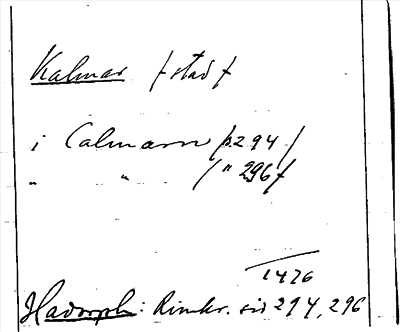 Kalmar / stad /
i Calmarn /s. 294 /
„ „ /„ 296 /
1476
Hadorph: Rimkr. sid 294, 296